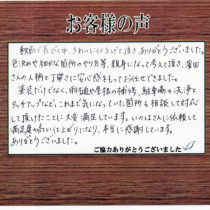 お客様の声
秋雨で長びく中、きれいに仕上げて頂きありがとうございました。
色決めや細かな箇所のやり方等、親身になって考えて頂き、濱田
さんの人柄と丁寧さに安心感をもっておまかせできました。
塗装だけでなく、雨樋や雪状の補修、駐車場の洗浄と
タッチアップなど、これまで気になっていた箇所も相談して対応し
て頂けたことに大変満足しています。いのはさんに依頼して
満足度の高い仕上がりになり、本当に感謝しています。
ありがとうございました。
ご協力ありがとうございました